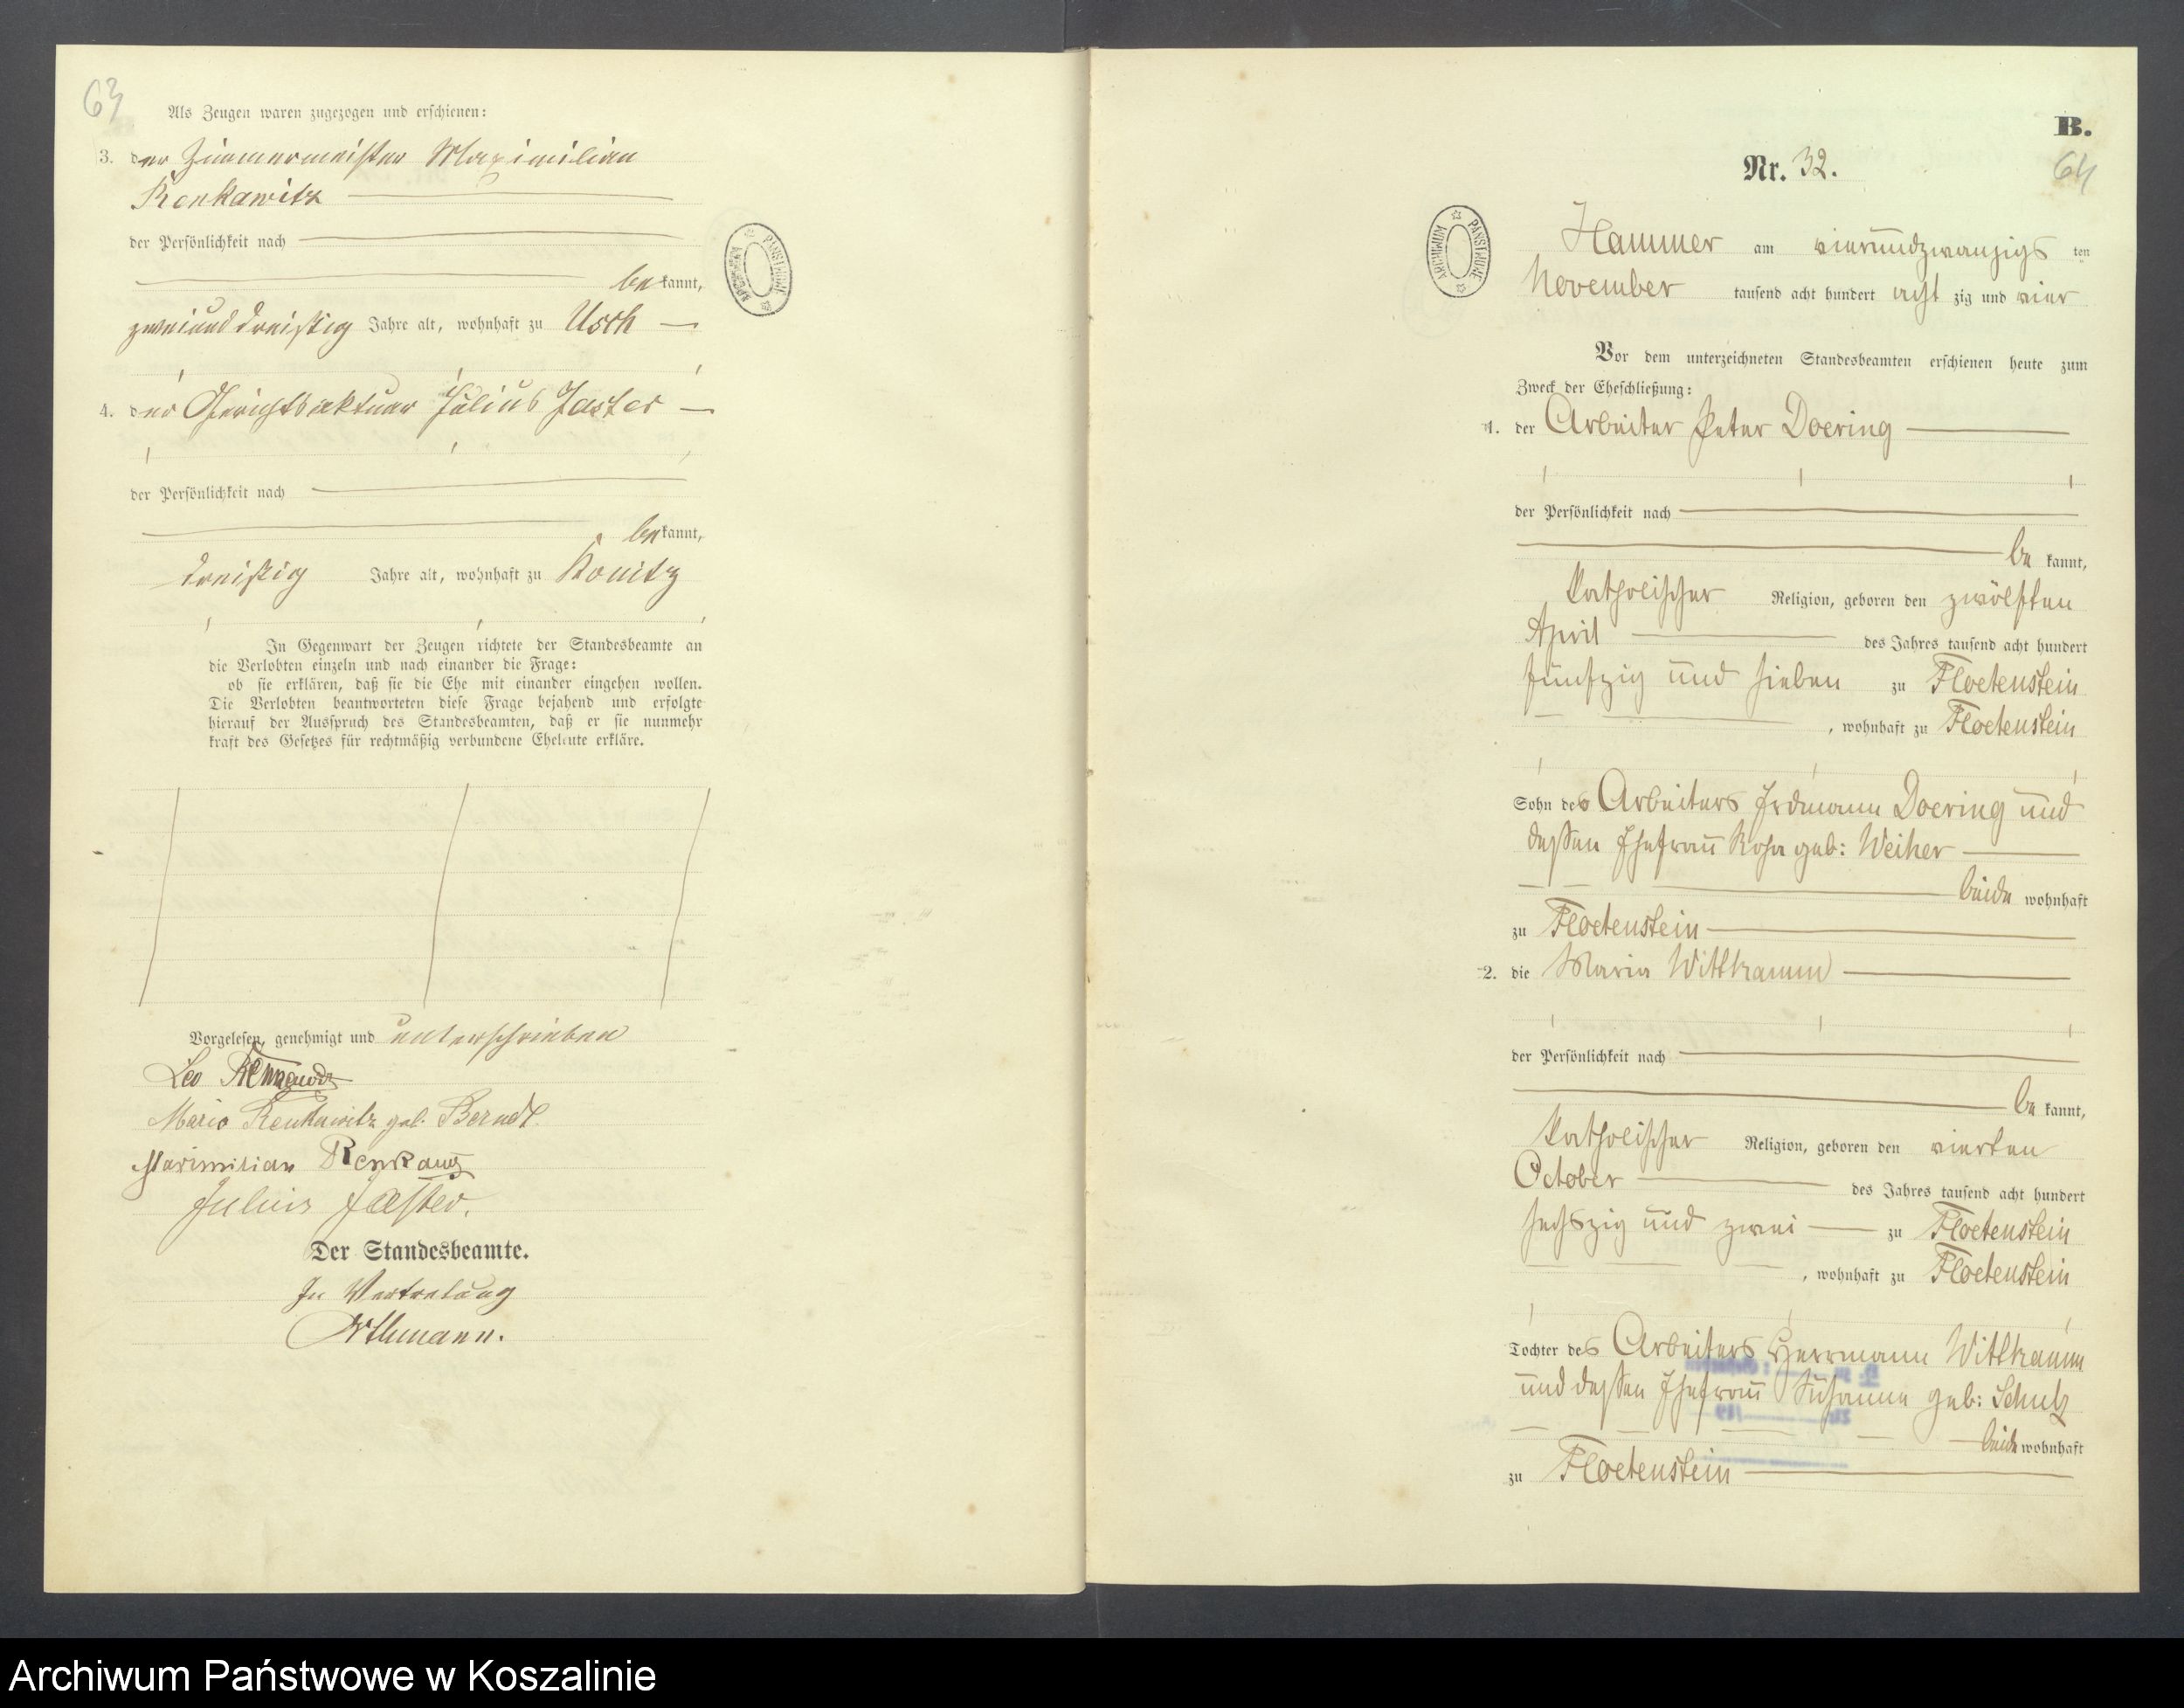 63
Als Zeugen waren zugezogen und erschienen:
3. der Zimmermeister Maximilian
Renkawitz
der Persönlichkeit nach
bekannt,
zweiunddreißig Jahre alt, wohnhaft zu Usch
4. der Gerichtsaktuar Julius Jaster
der Persönlichkeit nach
bekannt,
dreißig Jahre alt, wohnhaft zu Konitz
In Gegenwart der Zeugen richtete der Standesbeamte an
die Verlobten einzeln und nach einander die Frage:
ob sie erklären, daß sie die Ehe mit einander eingehen wollen.
Die Verlobten beantworteten diese Frage bejahend und erfolgte
hierauf der Ausspruch des Standesbeamten, daß er sie nunmehr
kraft des Gesetzes für rechtmäßig verbundene Eheleute erkläre.
Vorgelesen, genehmigt und unterschrieben
Leo
Maria Renkawitz geb. Berndt.
Maximilian
Julius Jaster.
Der Standesbeamte.
In Vertretung
ARCHIWUM PAŃSTWOWE
B.
Nr. 32.
64
ARCHIWUM PAŃSTWOWE
Hammer am vierundzwanzigs ten
November tausend acht hundert acht zig und vier
Vor dem unterzeichneten Standesbeamten erschienen heute zum
Zweck der Eheschließung:
1. der Arbeiter Peter Doering
der Persönlichkeit nach
be kannt,
katholischer Religion, geboren den zwölften
April des Jahres tausend acht hundert
fünfzig und sieben zu Floetenstein
, wohnhaft zu Floetenstein
Sohn des Arbeiters Erdmann Doering und
dessen Ehefrau Rosa geb: Weiher
beide wohnhaft
zu Floetenstein
2. die Maria Witthramm
der Persönlichkeit nach
be kannt,
katholischer Religion, geboren den vierten
October des Jahres tausend acht hundert
sechszig und zwei zu Floetenstein
, wohnhaft zu Floetenstein
Tochter des Arbeiters Herrmann Witthramm
und dessen Ehefrau Susanna geb: Schulz
beide wohnhaft
zu Floetenstein
Archiwum Państwowe w Koszalinie